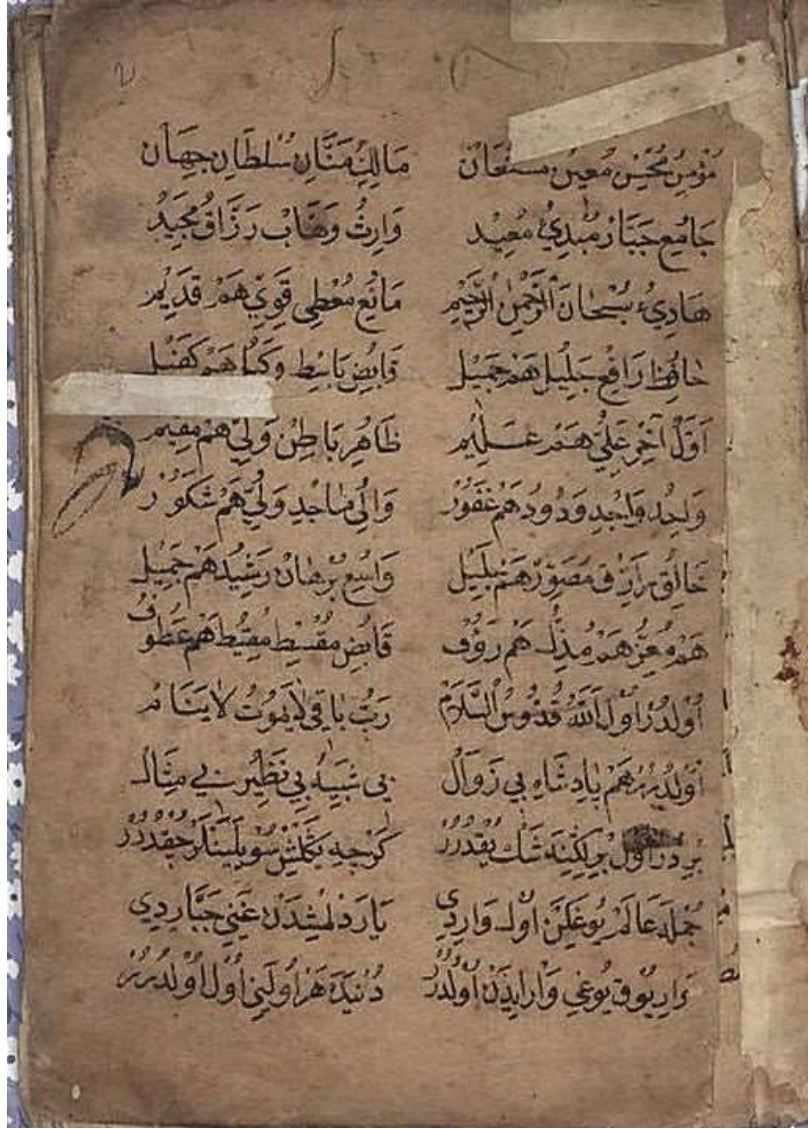 مُؤْمِنُ مُحْسِنْ مُعِينُ مُسْتَعَانْ مَالِكِ مَنَّانِ سُلْطَانِ جِهَانْ
جَامِعِ جَبَّارْ مُبْدِئُ مُعِيدْ وَارِثُ وَهَّابْ رَزَّاقُ مَجِيدْ
هَادِيءُ سُبْحَانَ الرَّحْمٰنِ الرَّحِيمْ مَانِعِ مُعْطِي قَوِيّ هَمْ قَدِيمْ
حَافِظِ رَافِعِ جَلِيلْ هَمْ جَمِيلْ قَابِضِ بَاسِطِ هَمْ كَفِيلْ
اَوَّلْ آخِرْ عَلِيّ هَمْ عَلِيمْ ظَاهِرِ بَاطِنْ وَلِيّ هَمْ مُقِيمْ
وَاحِدِ وَاجِدِ وَدُودْ هَمْ غَفُورْ وَالِي مَاجِدِ وَلِيّ هَمْ شَكُورْ
خَالِقِ مُصَوِّرْ هَمْ وَاسِعِ بُرْهَانْ رَشِيدْ هَمْ جَمِيلْ
هَمْ مُعِزُّ هَمْ مُذِلّْ هَمْ رَؤُفْ قَابِضِ مُقْسِطِ مُقِيطْ هَمْ عَطُوفْ
اُولْدُرْ اَوَّلْ اَللّٰهُ قُدُّوسُ السَّلَامْ رَبُّ بَاقِي لَايَمُوتُ لَايَنَامْ
اُولْدُرُرْ هَمْ پَادِشَاهِ بِي زَوَالْ بِي شَبِيهُ بِي نَظِيرُ بِي مِثَالْ
بِرْ دُرْ اُولْ بِرْلِكِنَه شَكْ يُقْدُرُرْ كَرْچِه يَكْلِمْشْ سُويْلَيَنْلَرْ چُقْدُرُرْ
جُمْلَه عَالَمْ يُوغِكَنْ اُولْ وَارِدِي يَارَدِلْمِشْدَنْ غَنِي جَبَّارِدِي
وَارِ يُوقْ يُوغِي وَارْ ايدَنْ اُولْدُرُرْ دُنْيَدَه هَرْ اُولَنِي اُولْ اُولْدُرُرْ